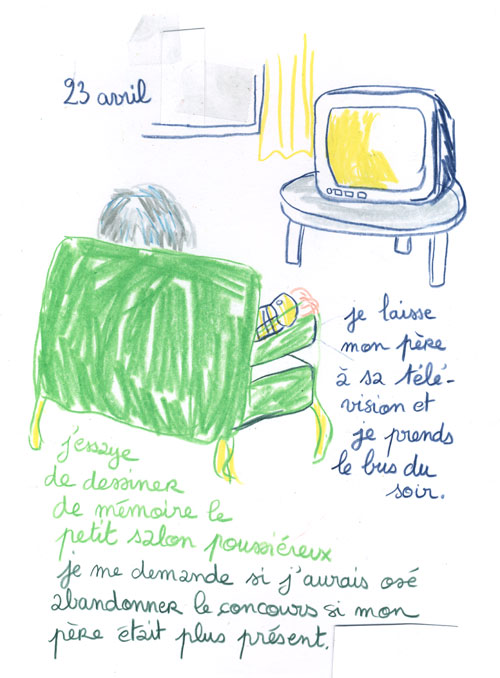 23 avril
je laisse
mon père
à sa télé-
vision et
je prends
le bus du
soir.
j'essaye
de dessiner
de mémoire le
petit salon poussiéreux
je me demande si j'aurais osé
abandonner le concours si mon
père était plus présent.